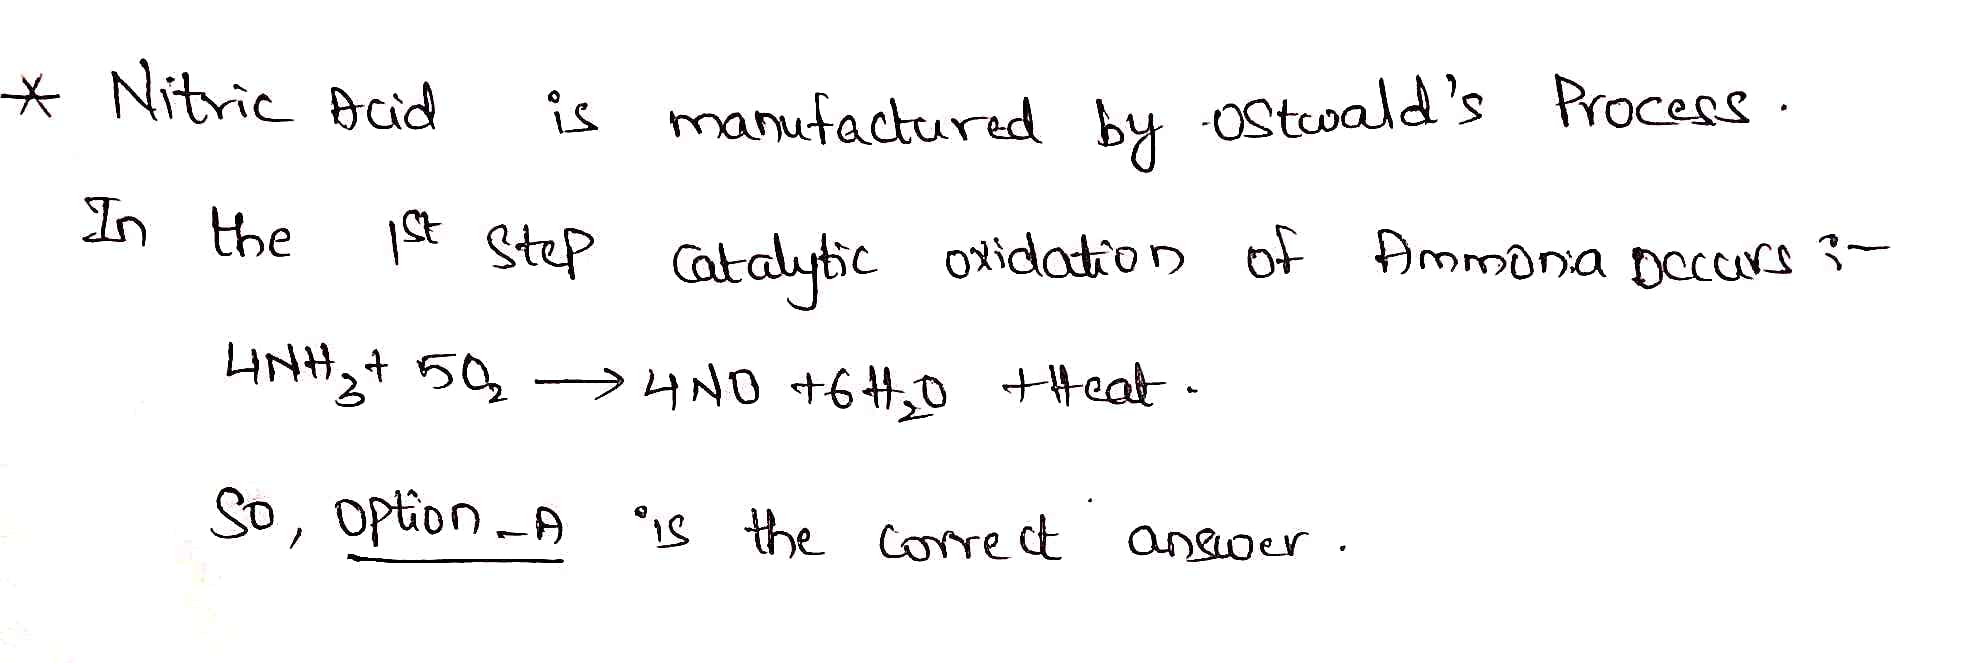 * Nitric Acid is manufactured by Ostwald's Process.
In the 1st Step Catalytic oxidation of Ammonia occurs :-
4NH₃ + 5O₂ → 4NO + 6H₂O + Heat.
So, option-A is the correct answer.